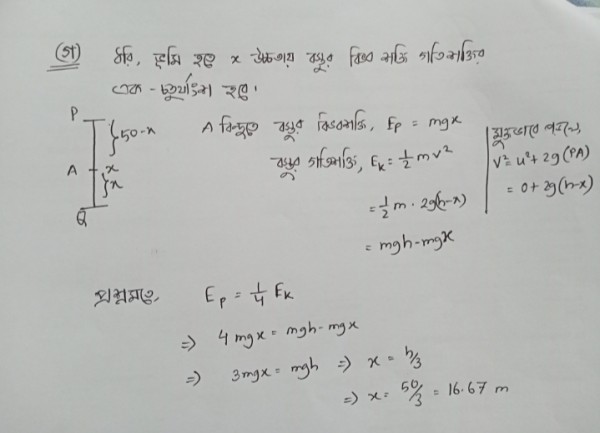 (গ) ধরি, ভূমি হতে x উচ্চতায় বস্তুর বিভব শক্তি গতিশক্তির
এক-চতুর্থাংশ হবে।
P
50-x
A
x
x
Q
A বিন্দুতে বস্তুর বিভবশক্তি, Ep = mgx
বস্তুর গতিশক্তি, EK = 1/2 mv²
= 1/2 m · 2g(h-x)
= mgh-mgx
মুক্তভাবে পড়লে,
v² = u² + 2g(PA)
= 0 + 2g(h-x)
প্রশ্নমতে, Ep = 1/4 EK
⇒ 4mgx = mgh-mgx
⇒ 3mgx = mgh ⇒ x = h/3
⇒ x = 50/3 = 16.67 m